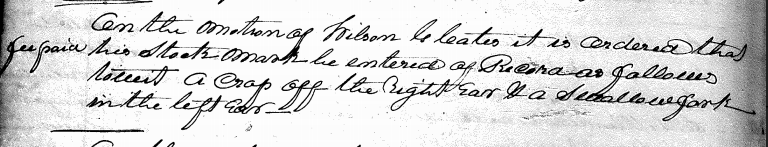 On the motion of Wilson Cleates it is ordered that
fee paid his Stock mark be entered of Record as follows
towit a Crop off the Right Ear & a Swallow fork
in the left Ear